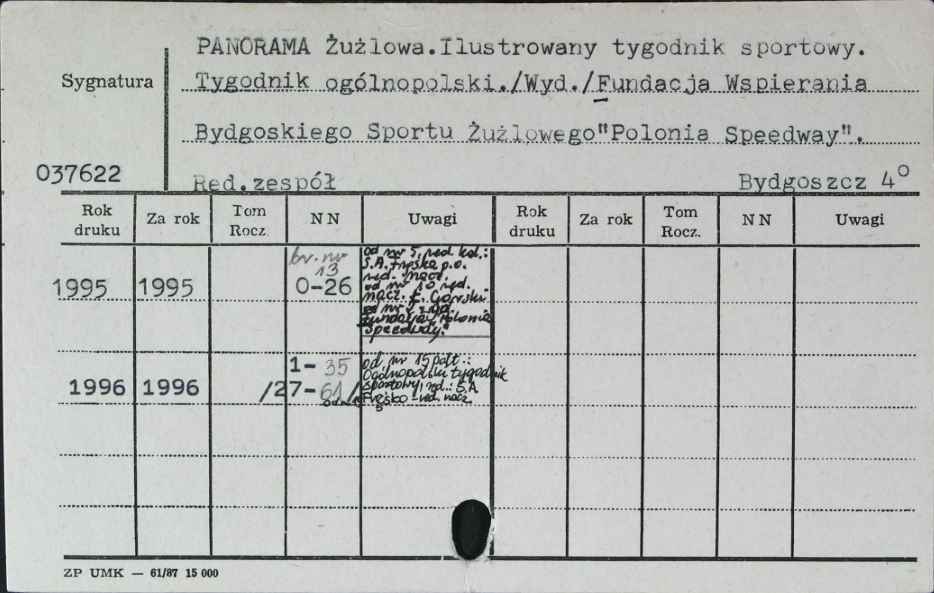 PANORAMA Żużlowa.Ilustrowany tygodnik sportowy.
Sygnatura
Tygodnik ogólnopolski./Wyd./Fundacja Wspierania
Bydgoskiego Sportu Żużlowego"Polonia Speedway".
037622
Red.zespół Bydgoszcz 4°
Rok druku Za rok Tom Rocz. N N Uwagi Rok druku Za rok Tom Rocz. N N Uwagi
br. nr 13
1995 1995 0-26
od nr 5 red. kol.:
S.A. p.o.
red. nacz.
od nr 10 red.
nacz. Ł. Gorski
od nr
Fundacja Polonia
Speedway."
1996 1996 1-35
/27-61/
od nr 15 podt.:
Ogólnopolski tygodnik
sportowy, red.: S.A.
- red. nacz.
ZP UMK — 61/87 15 000